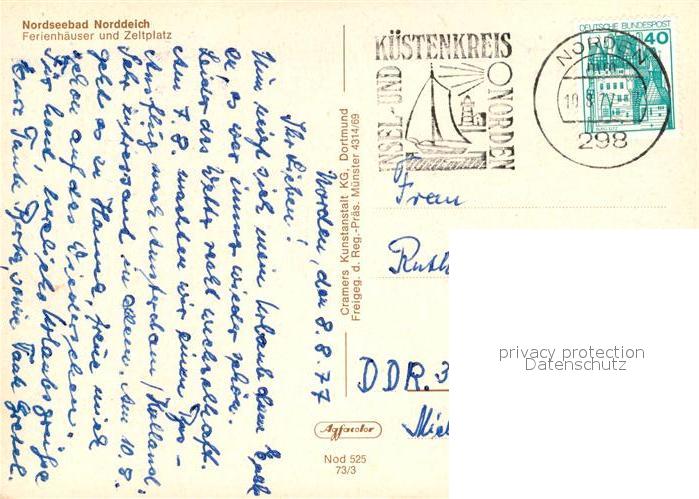 Nordseebad Norddeich
Ferienhäuser und Zeltplatz
Norden, den 8.8.77
Ihr Lieben!
Nun neigt sich mein Urlaub dem Ende
zu, es war immer wieder schön.
Leider das Wetter recht wechselhaft.
Am 7.8. machten wir einen
Ausflug nach Amsterdam/Holland
Sehr interessant in allem. Am 10.8.
geht es zu Hanna, freue mich
schon auf das Wiedersehen.
Für heute herzliche Urlaubsgrüße
Eure Tante Berta, sowie Tante Gretel.
Cramers Kunstanstalt KG, Dortmund
Freigeg. d. Reg.-Präs. Münster 4314/69
Agfacolor
Nod 525
73/3
INSEL- UND
KÜSTENKREIS
NORDEN
DEUTSCHE BUNDESPOST
40
NORDEN
10.8.77
298
Frau
Ruth
DDR. 3
privacy protection
Datenschutz